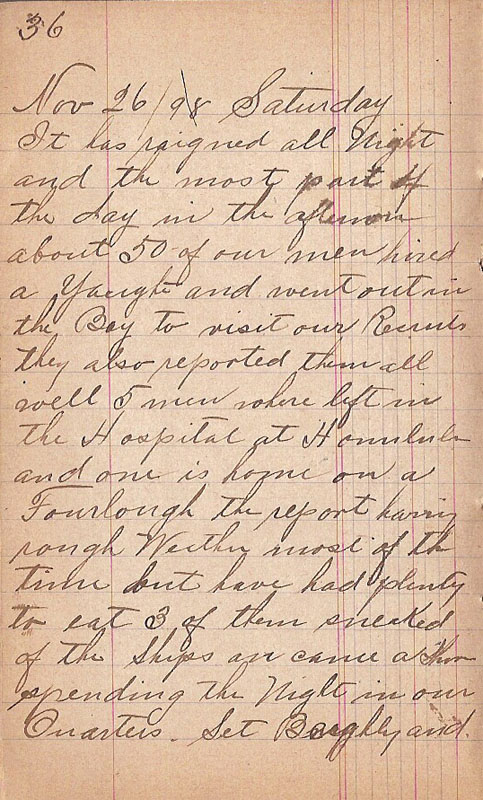 36
Nov 26/98 Saturday
It has raigned all Night
and the most part of
the day in the afternoon
about 50 of our men hired
a Yaught and went out in
the Bay to visit our Recruts
they also reported them all
well 5 men where left in
the Hospital at Honulule
and one is home on a
Fourlough the report having
rough Weather most of the
time but have had plenty
to eat 3 of them sneaked
of the Ships an came a Shore
spending the Night in our
Quarters. Set Beaghly and